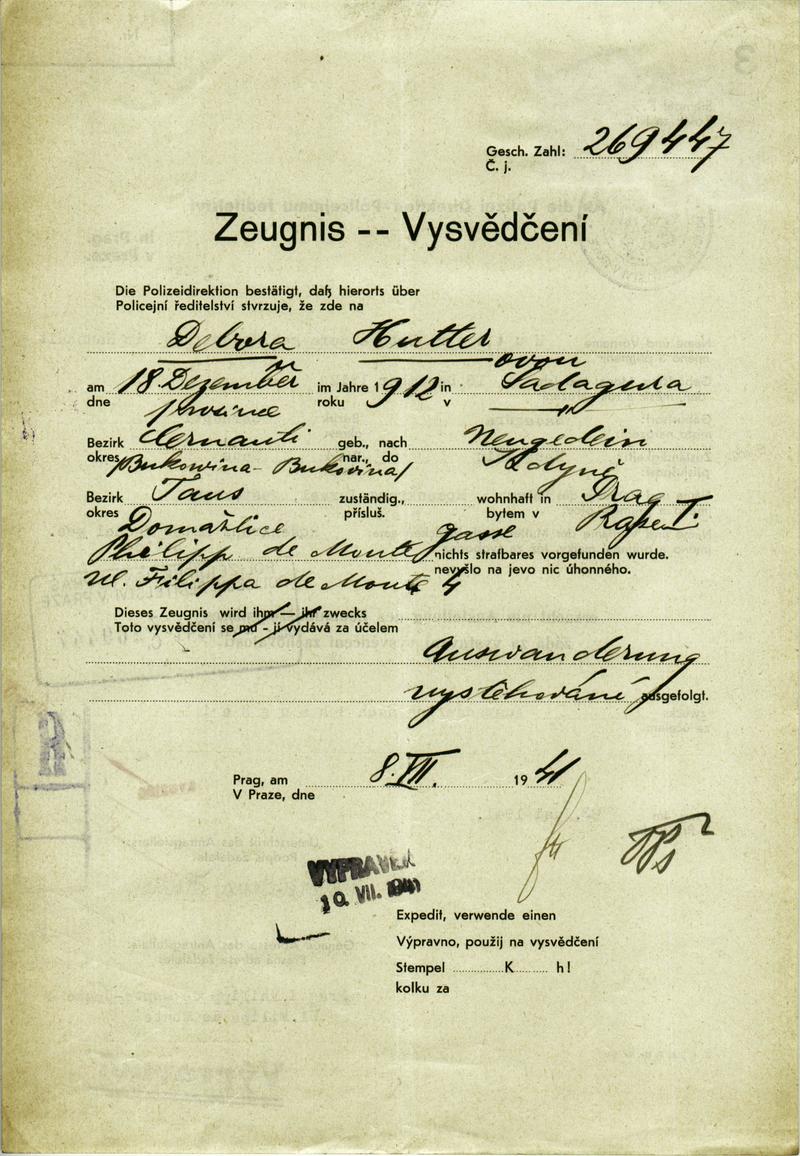 Gesch. Zahl: 269447
Č. j.
Zeugnis -- Vysvědčení
Die Polizeidirektion bestätigt, daß hierorts über
Policejní ředitelství stvrzuje, že zde na
Debora Hutter
ovou
am 18 Dezember im Jahre 1912 in Sadagura
dne prosince roku v
Bezirk Cernauti geb., nach Neugedein
okres /Bukowina - Bukovina/ nar., do Kdyně
Bezirk Taus zuständig., wohnhaft in Prag I.
okres Domažlice přísluš. bytem v
Philipp de Monte gasse nichts strafbares vorgefunden wurde.
ul. Filippa de Monte 4 nevyšlo na jevo nic úhonného.
Dieses Zeugnis wird ihm — ihr zwecks
Toto vysvědčení se mu - jí vydává za účelem
Auswanderung
vystěhování ausgefolgt.
Prag, am 8. VII. 1941
V Praze, dne
VYPRAVEN
10. VII. 1941
Expedit, verwende einen
Výpravno, použij na vysvědčení
Stempel ............... K .......... h!
kolku za